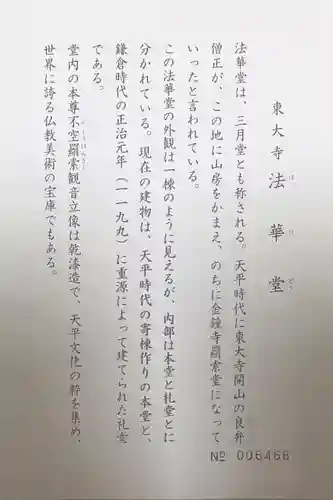 東大寺 法華堂
ほ け どう
法華堂は、三月堂とも称される。天平時代に東大寺開山の良弁
僧正が、この地に山房をかまえ、のちに金鐘寺羂索堂になって
いったと言われている。
この法華堂の外観は一棟のように見えるが、内部は本堂と札堂とに
分かれている。現在の建物は、天平時代の寄棟作りの本堂と、
鎌倉時代の正治元年（一一九九）に重源によって建てられた礼堂
である。
堂内の本尊不空羂索観音立像は乾漆造で、天平文化の粋を集め、
世界に誇る仏教美術の宝庫でもある。
№ 006466